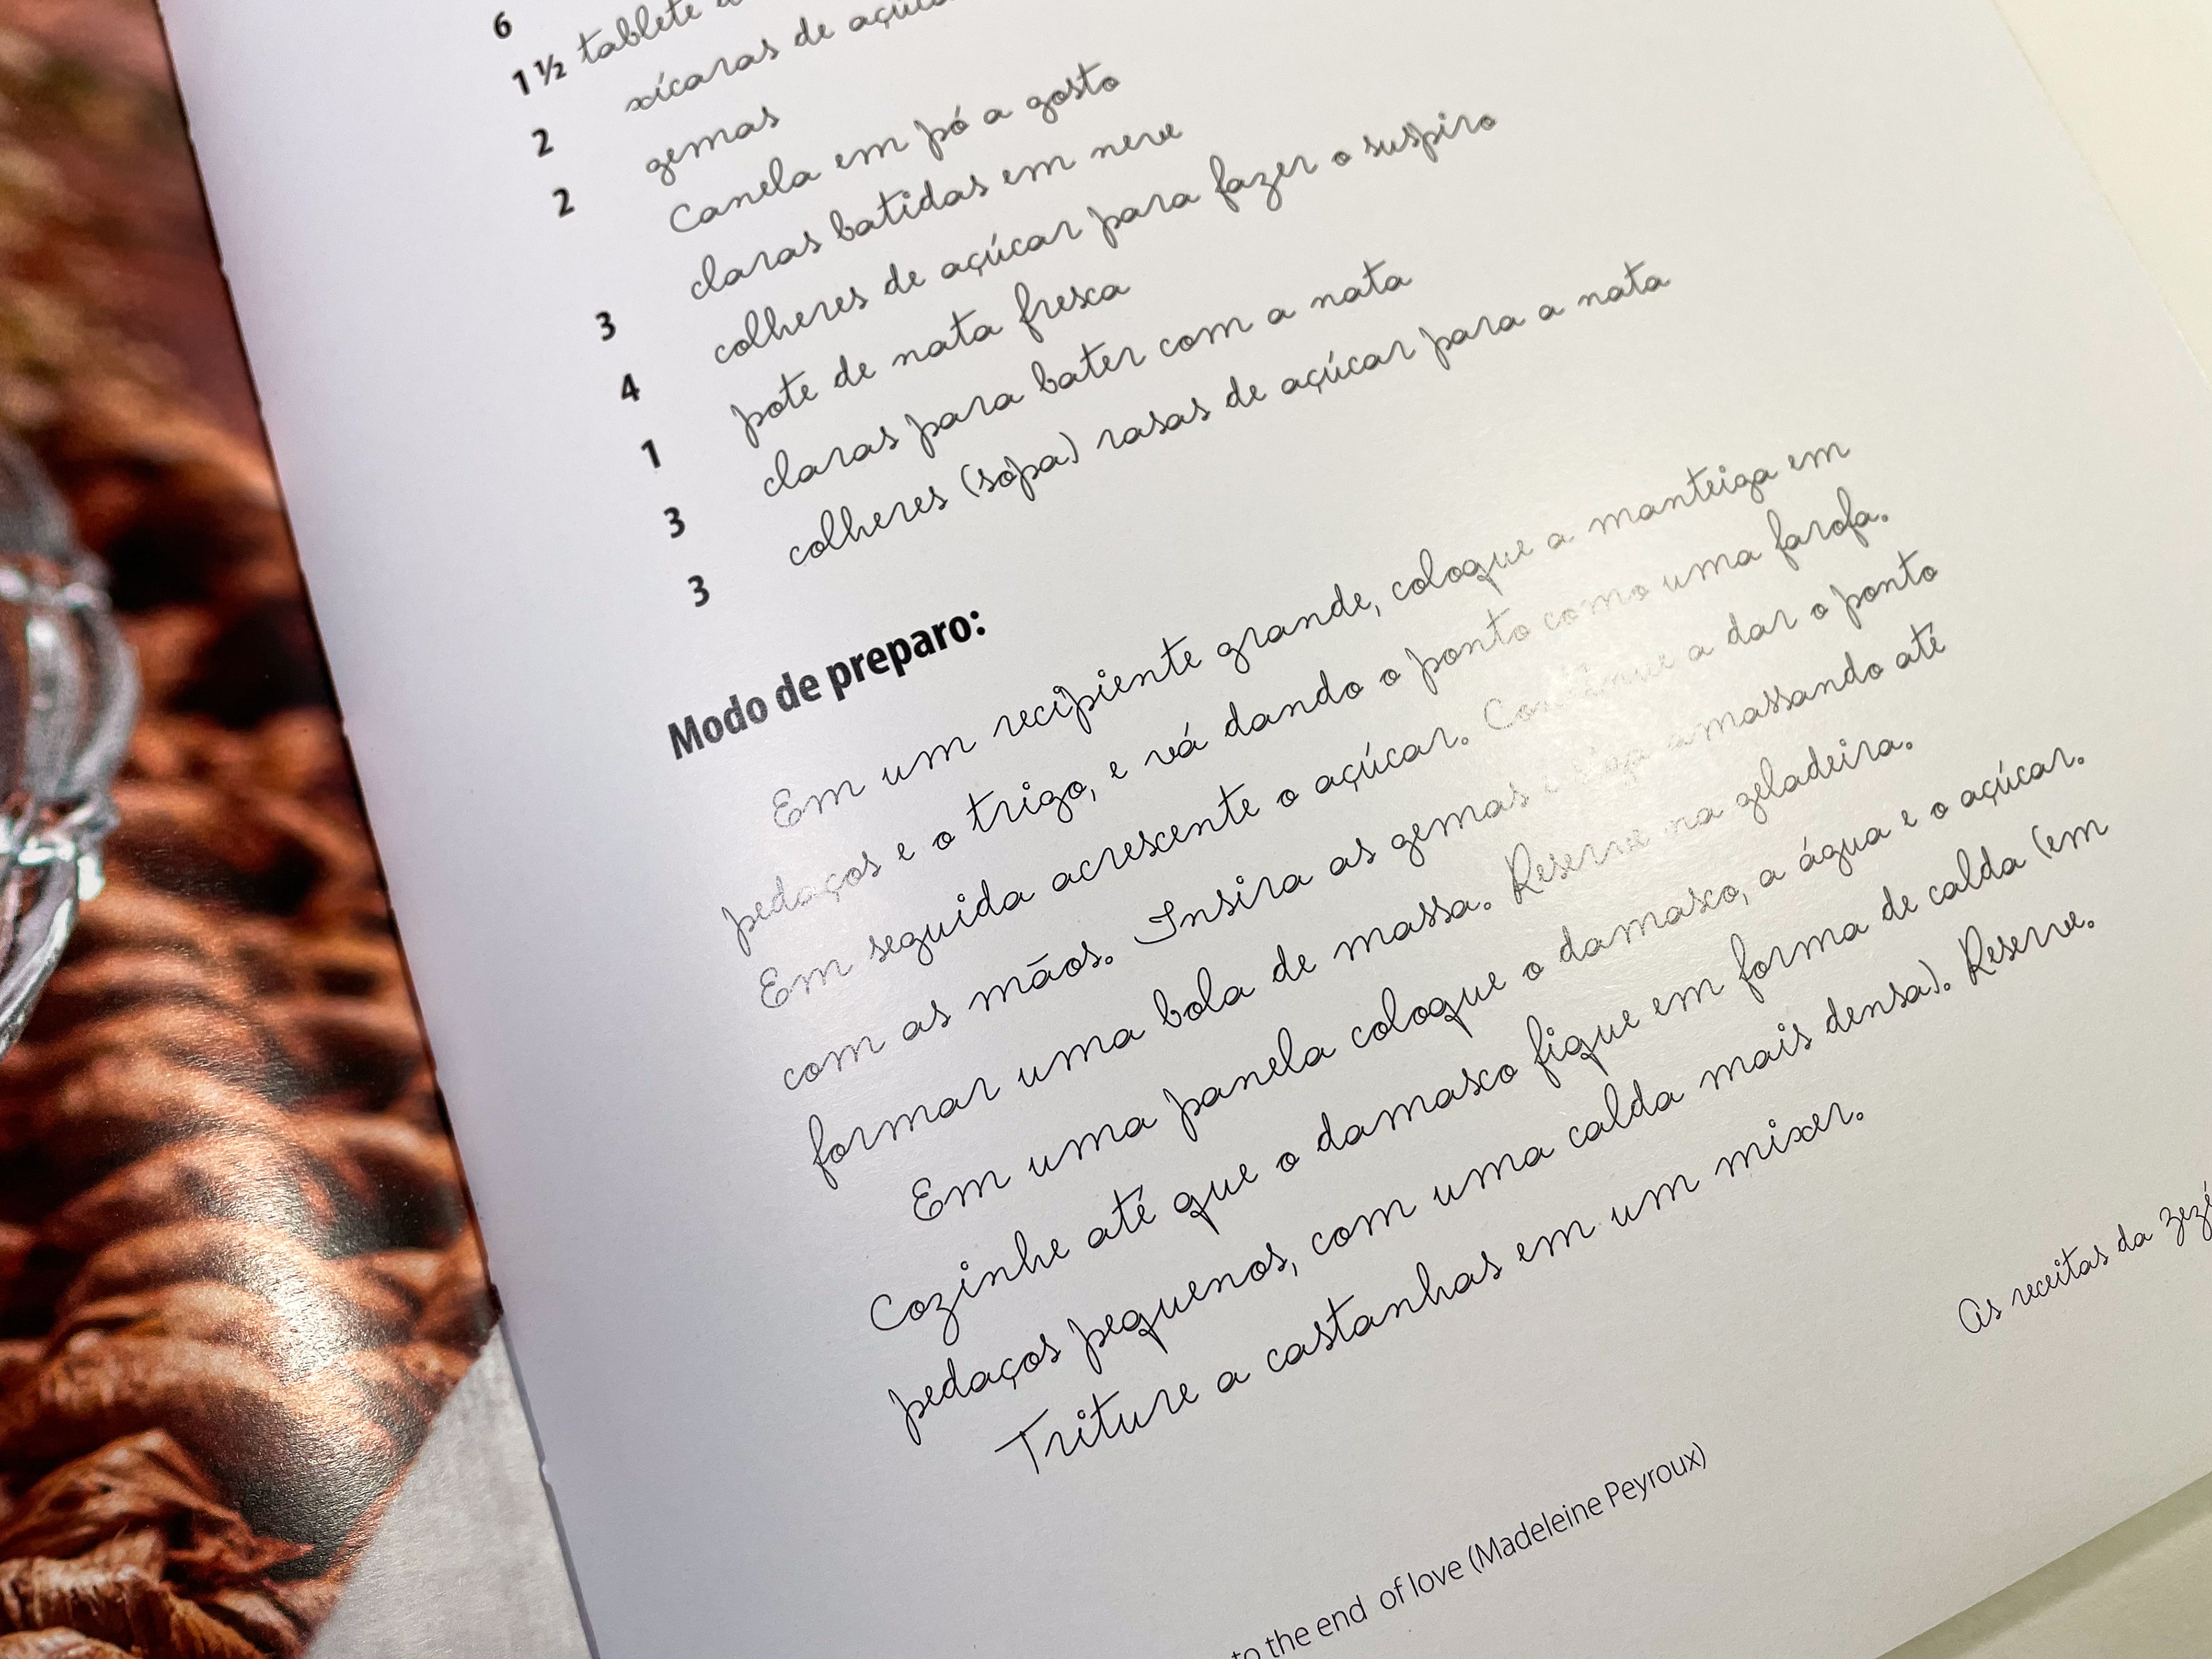 6
1 ½ tablete
2 xícaras de
2 gemas
Canela em pó a gosto
3 claras batidas em neve
4 colheres de açúcar para fazer o suspiro
1 pote de nata fresca
3 claras para bater com a nata
3 colheres (sopa) rasas de açúcar para a nata
Modo de preparo:
Em um recipiente grande, coloque a manteiga em
pedaços e o trigo, e vá dando o ponto como uma farofa.
Em seguida acrescente o açúcar. Continue a dar o ponto
com as mãos. Insira as gemas amassando até
formar uma bola de massa. Reserve na geladeira.
Em uma panela coloque o damasco, a água e o açúcar.
Cozinhe até que o damasco fique em forma de calda (em
pedaços pequenos, com uma calda mais densa). Reserve.
Triture a castanhas em um mixer.
As receitas da Zezé
to the end of love (Madeleine Peyroux)